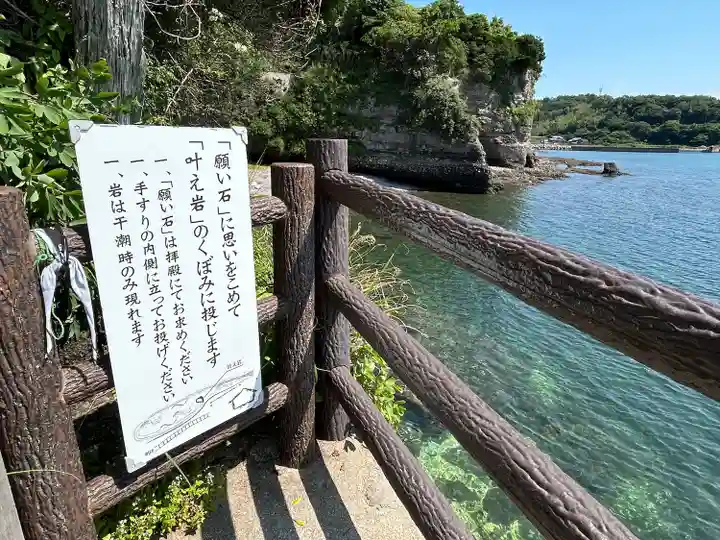 「願い石」に思いをこめて
「叶え岩」のくぼみに投じます
一、「願い石」は拝殿にてお求めください
一、手すりの内側に立ってお投げください
一、岩は干潮時のみ現れます
叶え岩